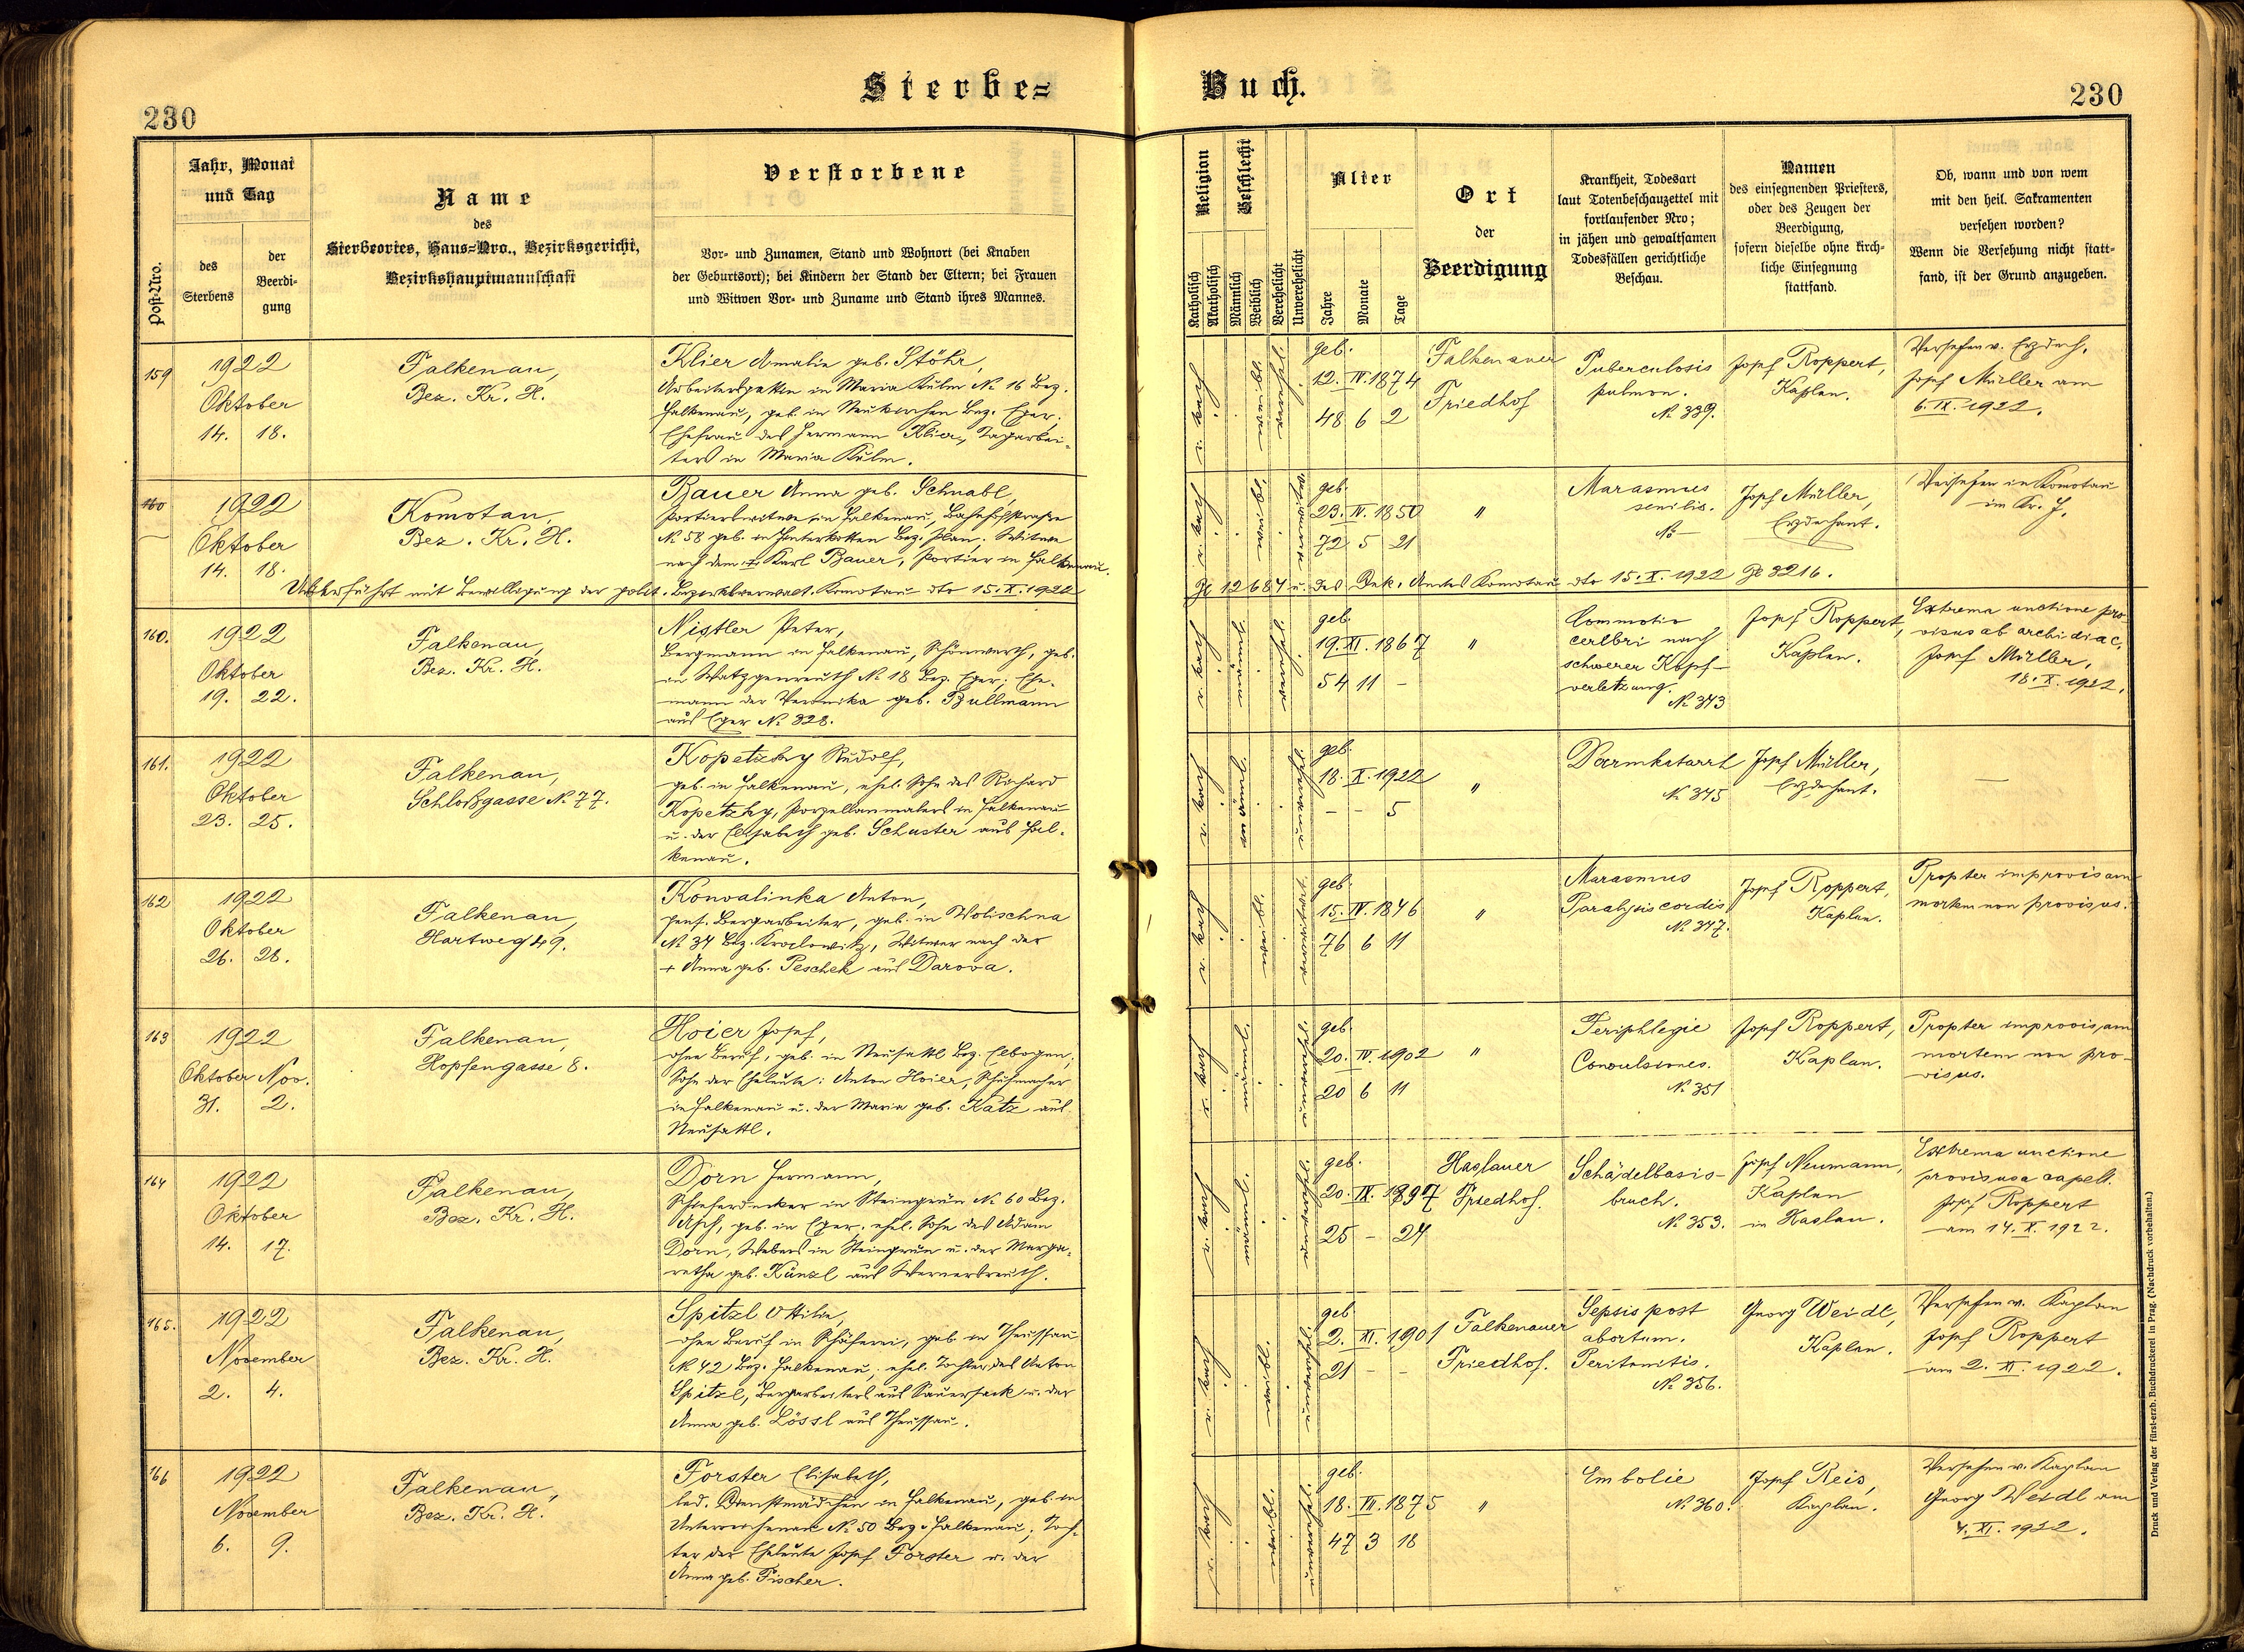 Sterbe=
Buch.
230
230
Post-Nro.
Jahr, Monat
und Tag
des
Sterbens
der
Beerdi-
gung
Name
des
Sterbeortes, Haus=Nro., Bezirksgericht,
Bezirkshauptmannschaft
Verstorbene
Vor- und Zunamen, Stand und Wohnort (bei Knaben
der Geburtsort); bei Kindern der Stand der Eltern; bei Frauen
und Witwen Vor- und Zuname und Stand ihres Mannes.
Religion
Katholisch
Akatholisch
Geschlecht
Männlich
Weiblich
Verehelicht
Unverehelicht
Alter
Jahre
Monate
Tage
Ort
der
Beerdigung
Krankheit, Todesart
laut Totenbeschauzettel mit
fortlaufender Nro;
in jähen und gewaltsamen
Todesfällen gerichtliche
Beschau.
Namen
des einsegnenden Priesters,
oder des Zeugen der
Beerdigung,
sofern dieselbe ohne kirch-
liche Einsegnung
stattfand.
Ob, wann und von wem
mit den heil. Sakramenten
versehen worden?
Wenn die Versehung nicht statt-
fand, ist der Grund anzugeben.
159
1922
Oktober
14. 18.
Falkenau,
Bez. Kr. H.
Klier Amalie geb. Stöhr,
Arbeitersgattin in Maria Kulm No 16 Bez.
Falkenau, geb. in Neukirchen Bez. Eger;
Ehefrau des Hermann Klier, Tagarbei-
ters in Maria Kulm.
geb.
12. IV. 1874
48 6 2
Falkenauer
Friedhof
Tuberculosis
pulmon.
No 339.
Josef Roppert,
Kaplan.
Versehen v. Erzdech.
Josef Müller am
6. IX. 1922.
160
1922
Oktober
14. 18.
Komotau,
Bez. Kr. H.
Bauer Anna geb. Schnabl,
Portierswitwe in Falkenau, Bahnhofstraße
No 58 geb. in Hinterkotten Bez. Plan; Witwe
nach dem + Karl Bauer, Portier in Falkenau.
geb.
23. IV. 1850
72 5 21
"
Marasmus
senilis.
No —
Josef Müller,
Erzdechant.
Versehen in Komotau
im Kr. H.
Überführt mit Bewilligung der polit. Bezirksverwalt. Komotau dto 15. X. 1922 Zl 12684 u. des Dek. Amtes Komotau dto 15. X. 1922 Zl 3216.
160.
1922
Oktober
19. 22.
Falkenau,
Bez. Kr. H.
Nistler Peter,
Bergmann in Falkenau, Schönwerth, geb.
in Watzgenreuth No 18 Bez. Eger; Ehe-
mann der Veronika geb. Bullmann
aus Eger No 328.
geb.
19. XI. 1867
54 11 -
"
Commotio
cerebri nach
schwerer Kopf-
verletzung.
No 373
Josef Roppert,
Kaplan.
Extrema unctione pro-
visus ab archidiac.
Josef Müller,
18. X. 1922.
161.
1922
Oktober
23. 25.
Falkenau,
Schloßgasse No 77.
Kopetzky Rudolf,
geb. in Falkenau, ehel. Sohn des Richard
Kopetzky, Porzellanmalers in Falkenau
u. der Elisabeth geb. Schuster aus Fal-
kenau.
geb.
18. X. 1922
- - 5
"
Darmkatarrh
No 345
Josef Müller,
Erzdechant.
—
162
1922
Oktober
26. 28.
Falkenau,
Hartweg 49.
Konvalinka Anton,
pens. Bergarbeiter, geb. in Wolischna
No 34 Bez. Kralowitz, Witwer nach der
+ Anna geb. Peschek aus Darova.
geb.
15. IV. 1846
76 6 11
"
Marasmus
Paralysis cordis
No 347.
Josef Roppert,
Kaplan.
Propter improvisam
mortem non provisus.
163
1922
Oktober Nov.
31. 2.
Falkenau,
Hopfengasse 8.
Hoier Josef,
ohne Beruf, geb. in Neusattl Bez. Elbogen;
Sohn der Eheleute: Anton Hoier, Schuhmacher
in Falkenau u. der Maria geb. Katz aus
Neusattl.
geb.
20. IV. 1902
20 6 11
"
Convulsiones.
No 351
Josef Roppert,
Kaplan.
Propter improvisam
mortem non pro-
visus.
164
1922
Oktober
14. 17.
Falkenau,
Bez. Kr. H.
Dorn Hermann,
Schieferdecker in Steingrün No 60 Bez.
Asch, geb. in Eger, ehel. Sohn des Adam
Dorn, Webers in Steingrün u. der Marga-
retha geb. Künzl aus Wernersreuth.
geb.
20. IX. 1897
25 - 24
Haslauer
Friedhof.
Schädelbasis-
bruch.
No 353.
Josef Neumann,
Kaplan
in Haslau.
Extrema unctione
provisus a capell.
Josef Roppert
am 14. X. 1922.
165.
1922
November
2. 4.
Falkenau,
Bez. Kr. H.
Spitzl Ottilie,
ohne Beruf in Schäferei, geb. in Theussau
No 42 Bez. Falkenau, ehel. Tochter des Anton
Spitzl, Bergarbeiters aus Sauersack u. der
Anna geb. Lössl aus Theussau.
geb
2. XI. 1901
21 - -
Falkenauer
Friedhof.
Sepsis post
abortum.
Peritonitis.
No 356.
Georg Weidl,
Kaplan.
Versehen v. Kaplan
Josef Roppert
am 2. XI. 1922.
166
1922
November
6. 9.
Falkenau,
Bez. Kr. H.
Forster Elisabeth,
led. Dienstmädchen in Falkenau, geb. in
No 50 Bez. Falkenau; Toch-
ter der Eheleute Josef Forster u. der
Anna geb. Fischer.
geb.
18. VII. 1875
47 3 18
"
Embolie
No 360.
Josef Reis,
Kaplan.
Versehen v. Kaplan
Georg Weidl am
4. XI. 1922.
Druck und Verlag der fürst-erzb. Buchdruckerei in Prag. (Nachdruck vorbehalten.)